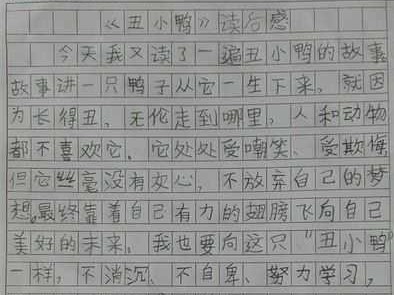 《丑小鸭》读后感
今天我又读了一遍丑小鸭的故事
故事讲一只鸭子从它一生下来，就因
为长得丑，无伦走到哪里，人和动物
都不喜欢它，它处处受嘲笑、受欺侮
但它丝毫没有灰心，不放弃自己的梦
想，最终靠着自己有力的翅膀飞向自己
美好的未来，我也要向这只“丑小鸭”
一样，不消沉、不自卑、努力学习，